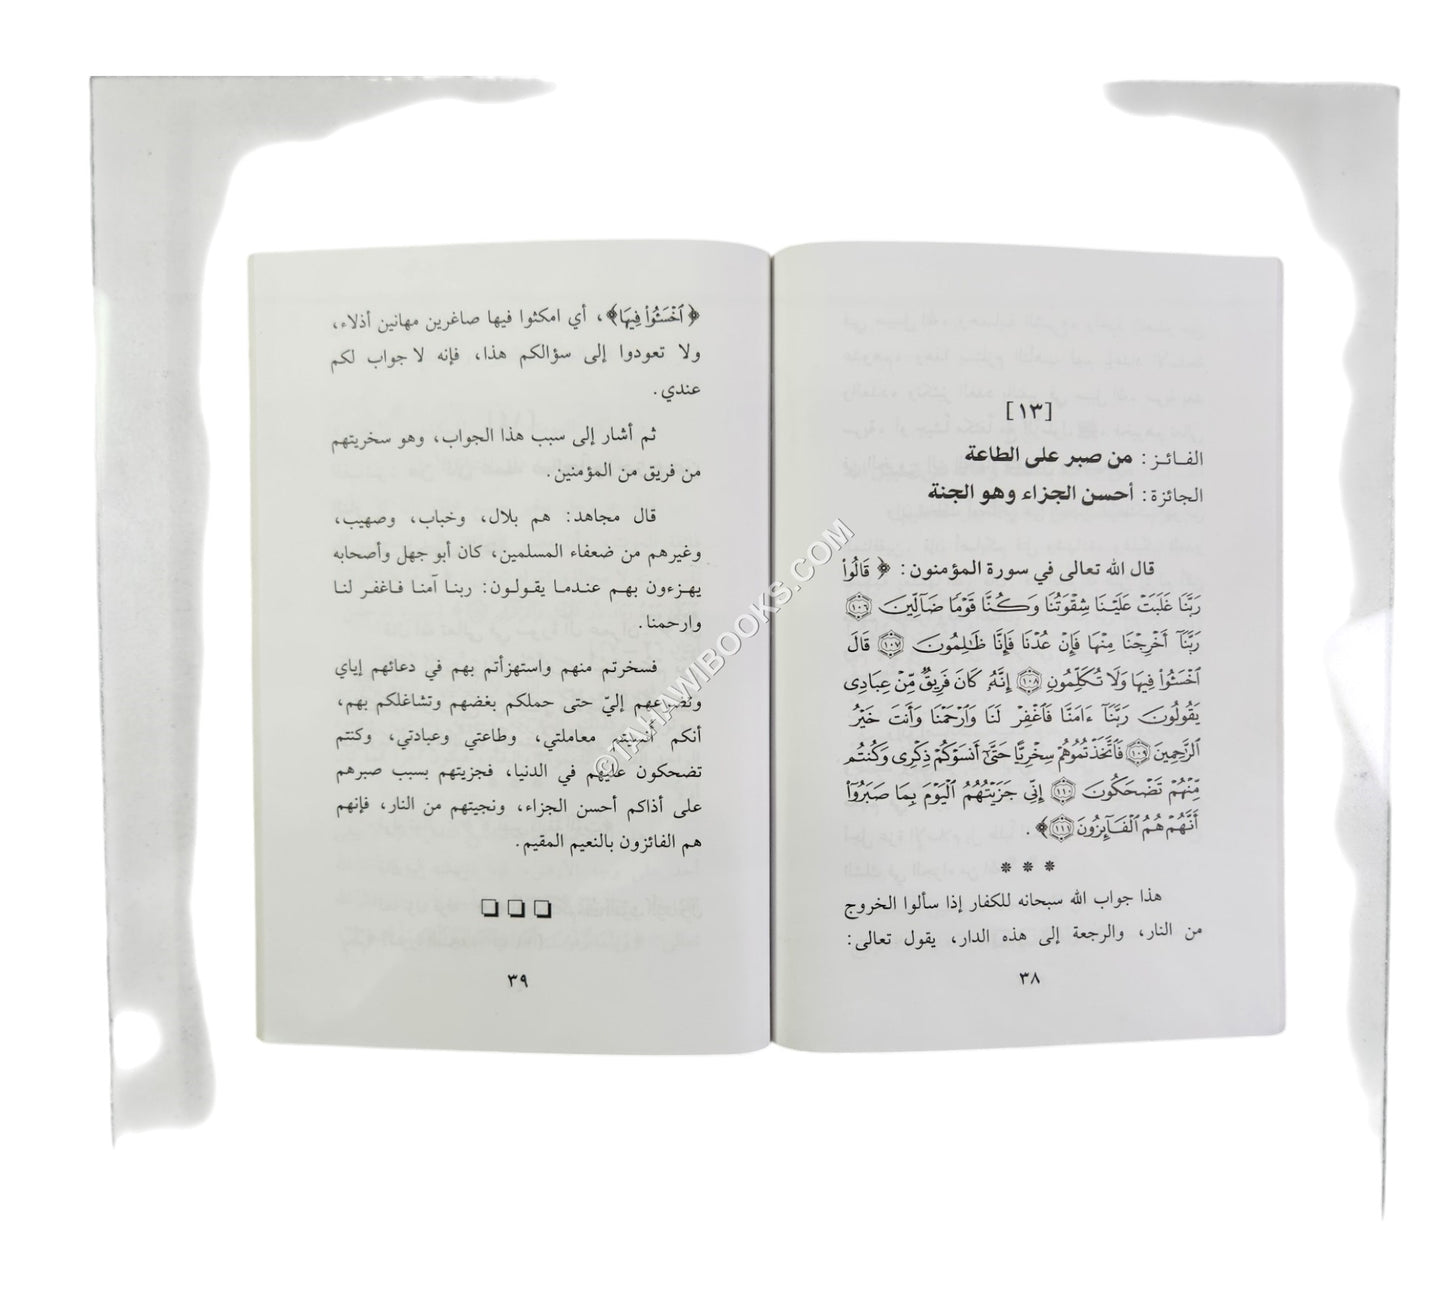 [١٣]
الفـائـز: من صبر على الطاعة
الجائزة: أحسن الجزاء وهو الجنة
قال الله تعالى في سورة المؤمنون: ﴿ قَالُواْ
رَبَّنَا غَلَبَتْ عَلَيْنَا شِقْوَتُنَا وَكُنَّا قَوْمًا ضَآلِّينَ ١٠٦
رَبَّنَآ أَخْرِجْنَا مِنْهَا فَإِنْ عُدْنَا فَإِنَّا ظَٰلِمُونَ ١٠٧ قَالَ
ٱخْسَـُٔواْ فِيهَا وَلَا تُكَلِّمُونِ ١٠٨ إِنَّهُۥ كَانَ فَرِيقٌ مِّنْ عِبَادِى
يَقُولُونَ رَبَّنَآ ءَامَنَّا فَٱغْفِرْ لَنَا وَٱرْحَمْنَا وَأَنتَ خَيْرُ
ٱلرَّٰحِمِينَ ١٠٩ فَٱتَّخَذْتُمُوهُمْ سِخْرِيًّا حَتَّىٰٓ أَنسَوْكُمْ ذِكْرِى وَكُنتُم
مِّنْهُمْ تَضْحَكُونَ ١١٠ إِنِّى جَزَيْتُهُمُ ٱلْيَوْمَ بِمَا صَبَرُوٓاْ
أَنَّهُمْ هُمُ ٱلْفَآئِزُونَ ١١١ ﴾ .
* * *
هذا جواب الله سبحانه للكفار إذا سألوا الخروج
من النار، والرجعة إلى هذه الدار، يقول تعالى:
٣٨
﴿ ٱخْسَـُٔواْ فِيهَا﴾، أي امكثوا فيها صاغرين مهانين أذلاء،
ولا تعودوا إلى سؤالكم هذا، فإنه لا جواب لكم
عندي.
ثم أشار إلى سبب هذا الجواب، وهو سخريتهم
من فريق من المؤمنين.
قال مجاهد: هم بلال، وخباب، وصهيب،
وغيرهم من ضعفاء المسلمين، كان أبو جهل وأصحابه
يهزءون بهم عندما يقولون: ربنا آمنا فاغفر لنا
وارحمنا.
فسخرتم منهم واستهزأتم بهم في دعائهم إياي
وتضرعهم إليّ حتى حملكم بغضهم وتشاغلكم بهم،
أنكم أنسيتم معاملتي، وطاعتي وعبادتي، وكنتم
تضحكون عليهم في الدنيا، فجزيتهم بسبب صبرهم
على أذاكم أحسن الجزاء، ونجيتهم من النار، فإنهم
هم الفائزون بالنعيم المقيم.
٣٩
©TAHAWIBOOKS.COM